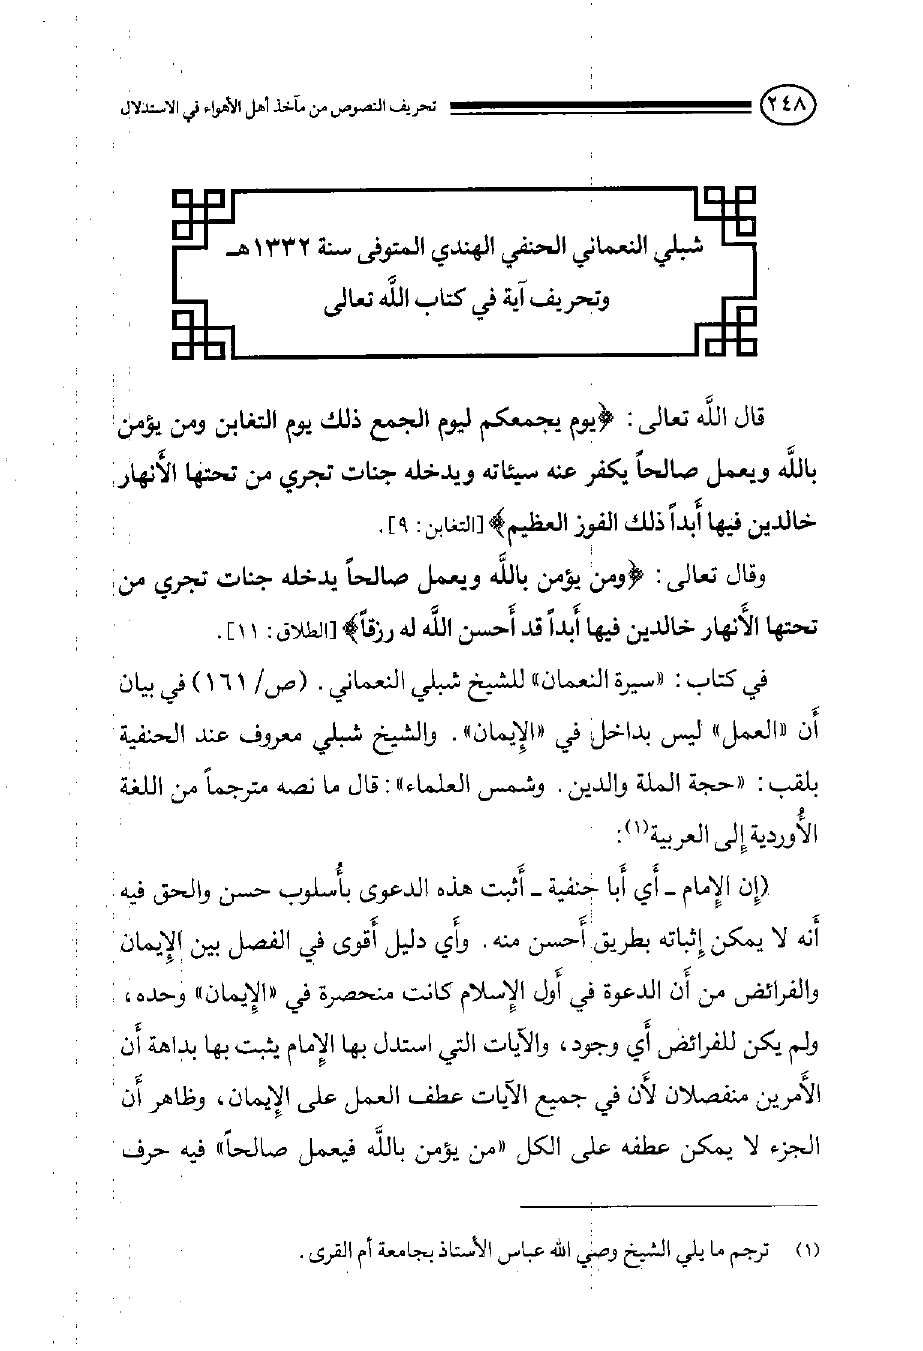 ٢٤٨ تحريف النصوص من مآخذ أهل الأهواء في الاستدلال
شبلي النعماني الحنفي الهندي المتوفى سنة ١٣٣٢هـ
وتحريف آية في كتاب اللَّه تعالى
قال اللَّه تعالى: ﴿يوم يجمعكم ليوم الجمع ذلك يوم التغابن ومن يؤمن
باللَّه ويعمل صالحاً يكفر عنه سيئاته ويدخله جنات تجري من تحتها الأنهار
خالدين فيها أبداً ذلك الفوز العظيم﴾ [التغابن: ٩].
وقال تعالى: ﴿ومن يؤمن باللَّه ويعمل صالحاً يدخله جنات تجري من
تحتها الأنهار خالدين فيها أبداً قد أحسن اللَّه له رزقاً﴾ [الطلاق: ١١].
في كتاب: «سيرة النعمان» للشيخ شبلي النعماني. (ص/ ١٦١) في بيان
أن «العمل» ليس بداخل في «الإيمان». والشيخ شبلي معروف عند الحنفية
بلقب: «حجة الملة والدين. وشمس العلماء»: قال ما نصه مترجماً من اللغة
الأوردية إلى العربية(١):
(إن الإمام ـ أي أبا حنفية ـ أثبت هذه الدعوى بأسلوب حسن والحق فيه
أنه لا يمكن إثباته بطريق أحسن منه. وأي دليل أقوى في الفصل بين الإيمان
والفرائض من أن الدعوة في أول الإسلام كانت منحصرة في «الإيمان» وحده،
ولم يكن للفرائض أي وجود، والآيات التي استدل بها الإمام يثبت بها بداهة أن
الأمرين منفصلان لأن في جميع الآيات عطف العمل على الإيمان، وظاهر أن
الجزء لا يمكن عطفه على الكل «من يؤمن باللَّه فيعمل صالحاً» فيه حرف
(١) ترجم ما يلي الشيخ وصي الله عباس الأستاذ بجامعة أم القرى.